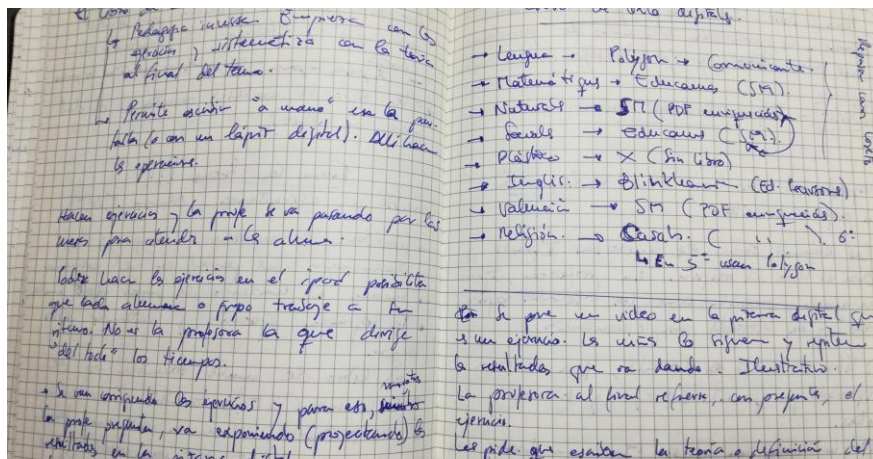 El libro de
↳ Pedagogía inversa. Empieza con los
ejercicios y sistematiza con la teoría
al final del tema.
→ Permite escribir "a mano" en la pan-
talla (o con un lápiz digital). Allí hacen
los ejercicios.
Hacen ejercicios y la profe se va pasando por las
mesas para atender a los alumnos.
Poder hacer los ejercicios en el ipad posibilita
que cada alumno o grupo trabaje a su
ritmo. No es la profesora la que dirige
"del todo" los tiempos.
• Se van corrigiendo los ejercicios y para eso, mientras
la profe pregunta, va exponiendo (proyectando) los
resultados en la pizarra digital
digitals.
→ Lengua → Polygon → Comunicante.
→ Matemátiques → Educamos (SM).
→ Naturals → SM (PDF enriquecidos)
→ Socials → educamos (SM)
→ Plástica → X (Sin libro)
→ Inglés. → Blinklearn (Ed. )
→ Valencià → SM (PDF enriquecidos).
→ Religión. → Casals. ( " ). 6º
↳ En 5º usan Polygon
Se pone un video en la pizarra digital que
es un ejercicio. Los niños lo siguen y repiten
los resultados que va dando. Ilustrativo.
La profesora al final refuerza, con preguntas, el
ejercicio.
Les pide que escriban la teoría o definición del